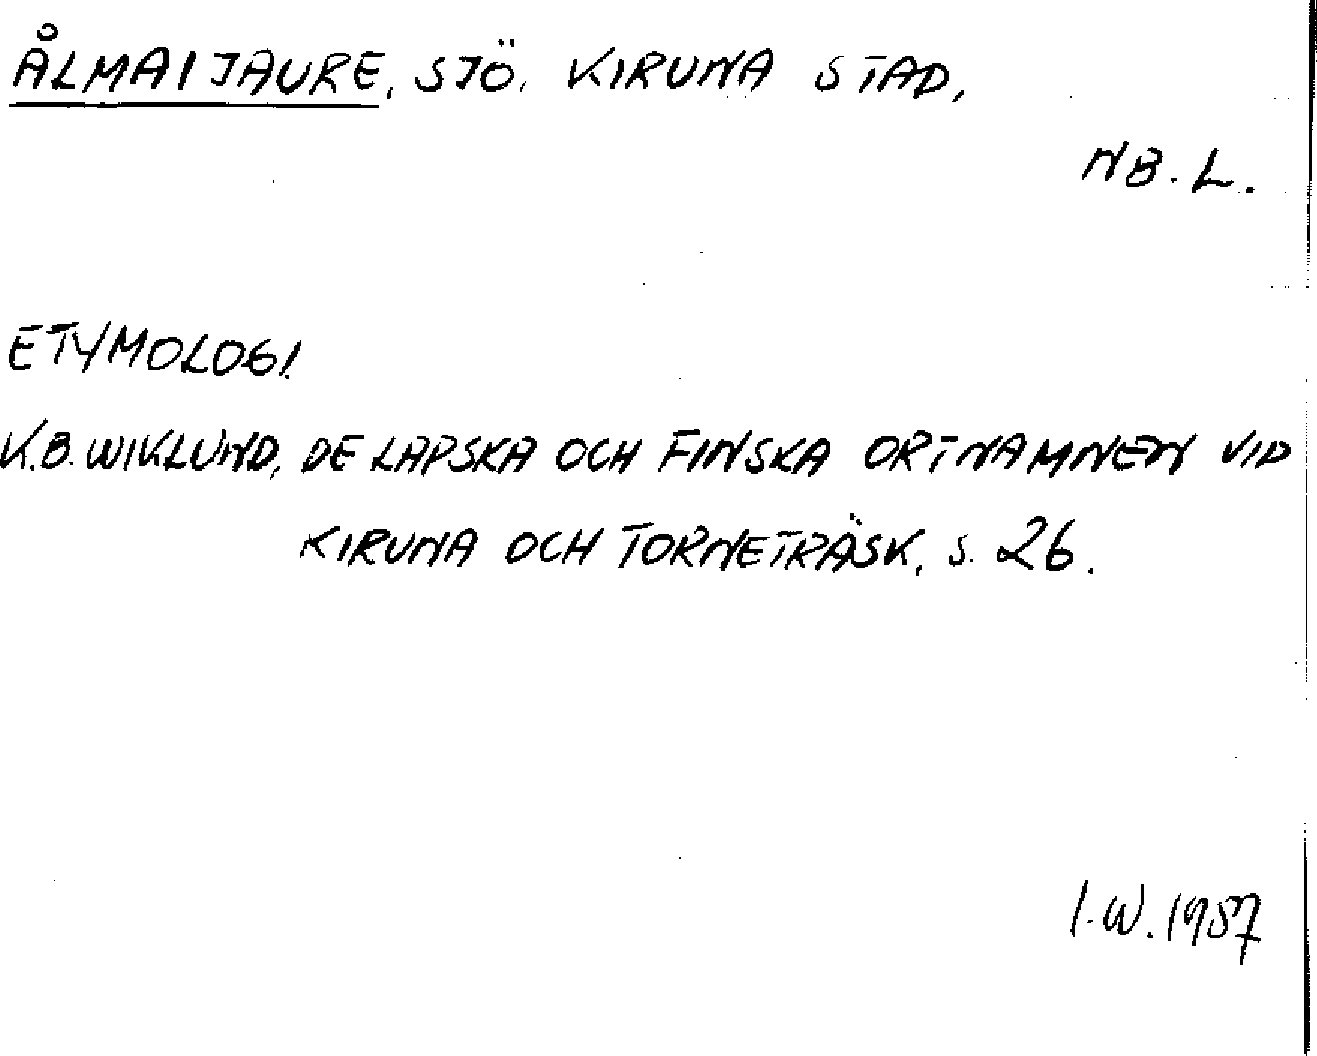 ÅLMAIJAURE, SJÖ, KIRUNA STAD,
NB. L.
ETYMOLOGI
K.B. WIKLUND, DE LAPSKA OCH FINSKA ORTNAMNEN VID
KIRUNA OCH TORNETRÄSK, S. 26.
I.W. 1957